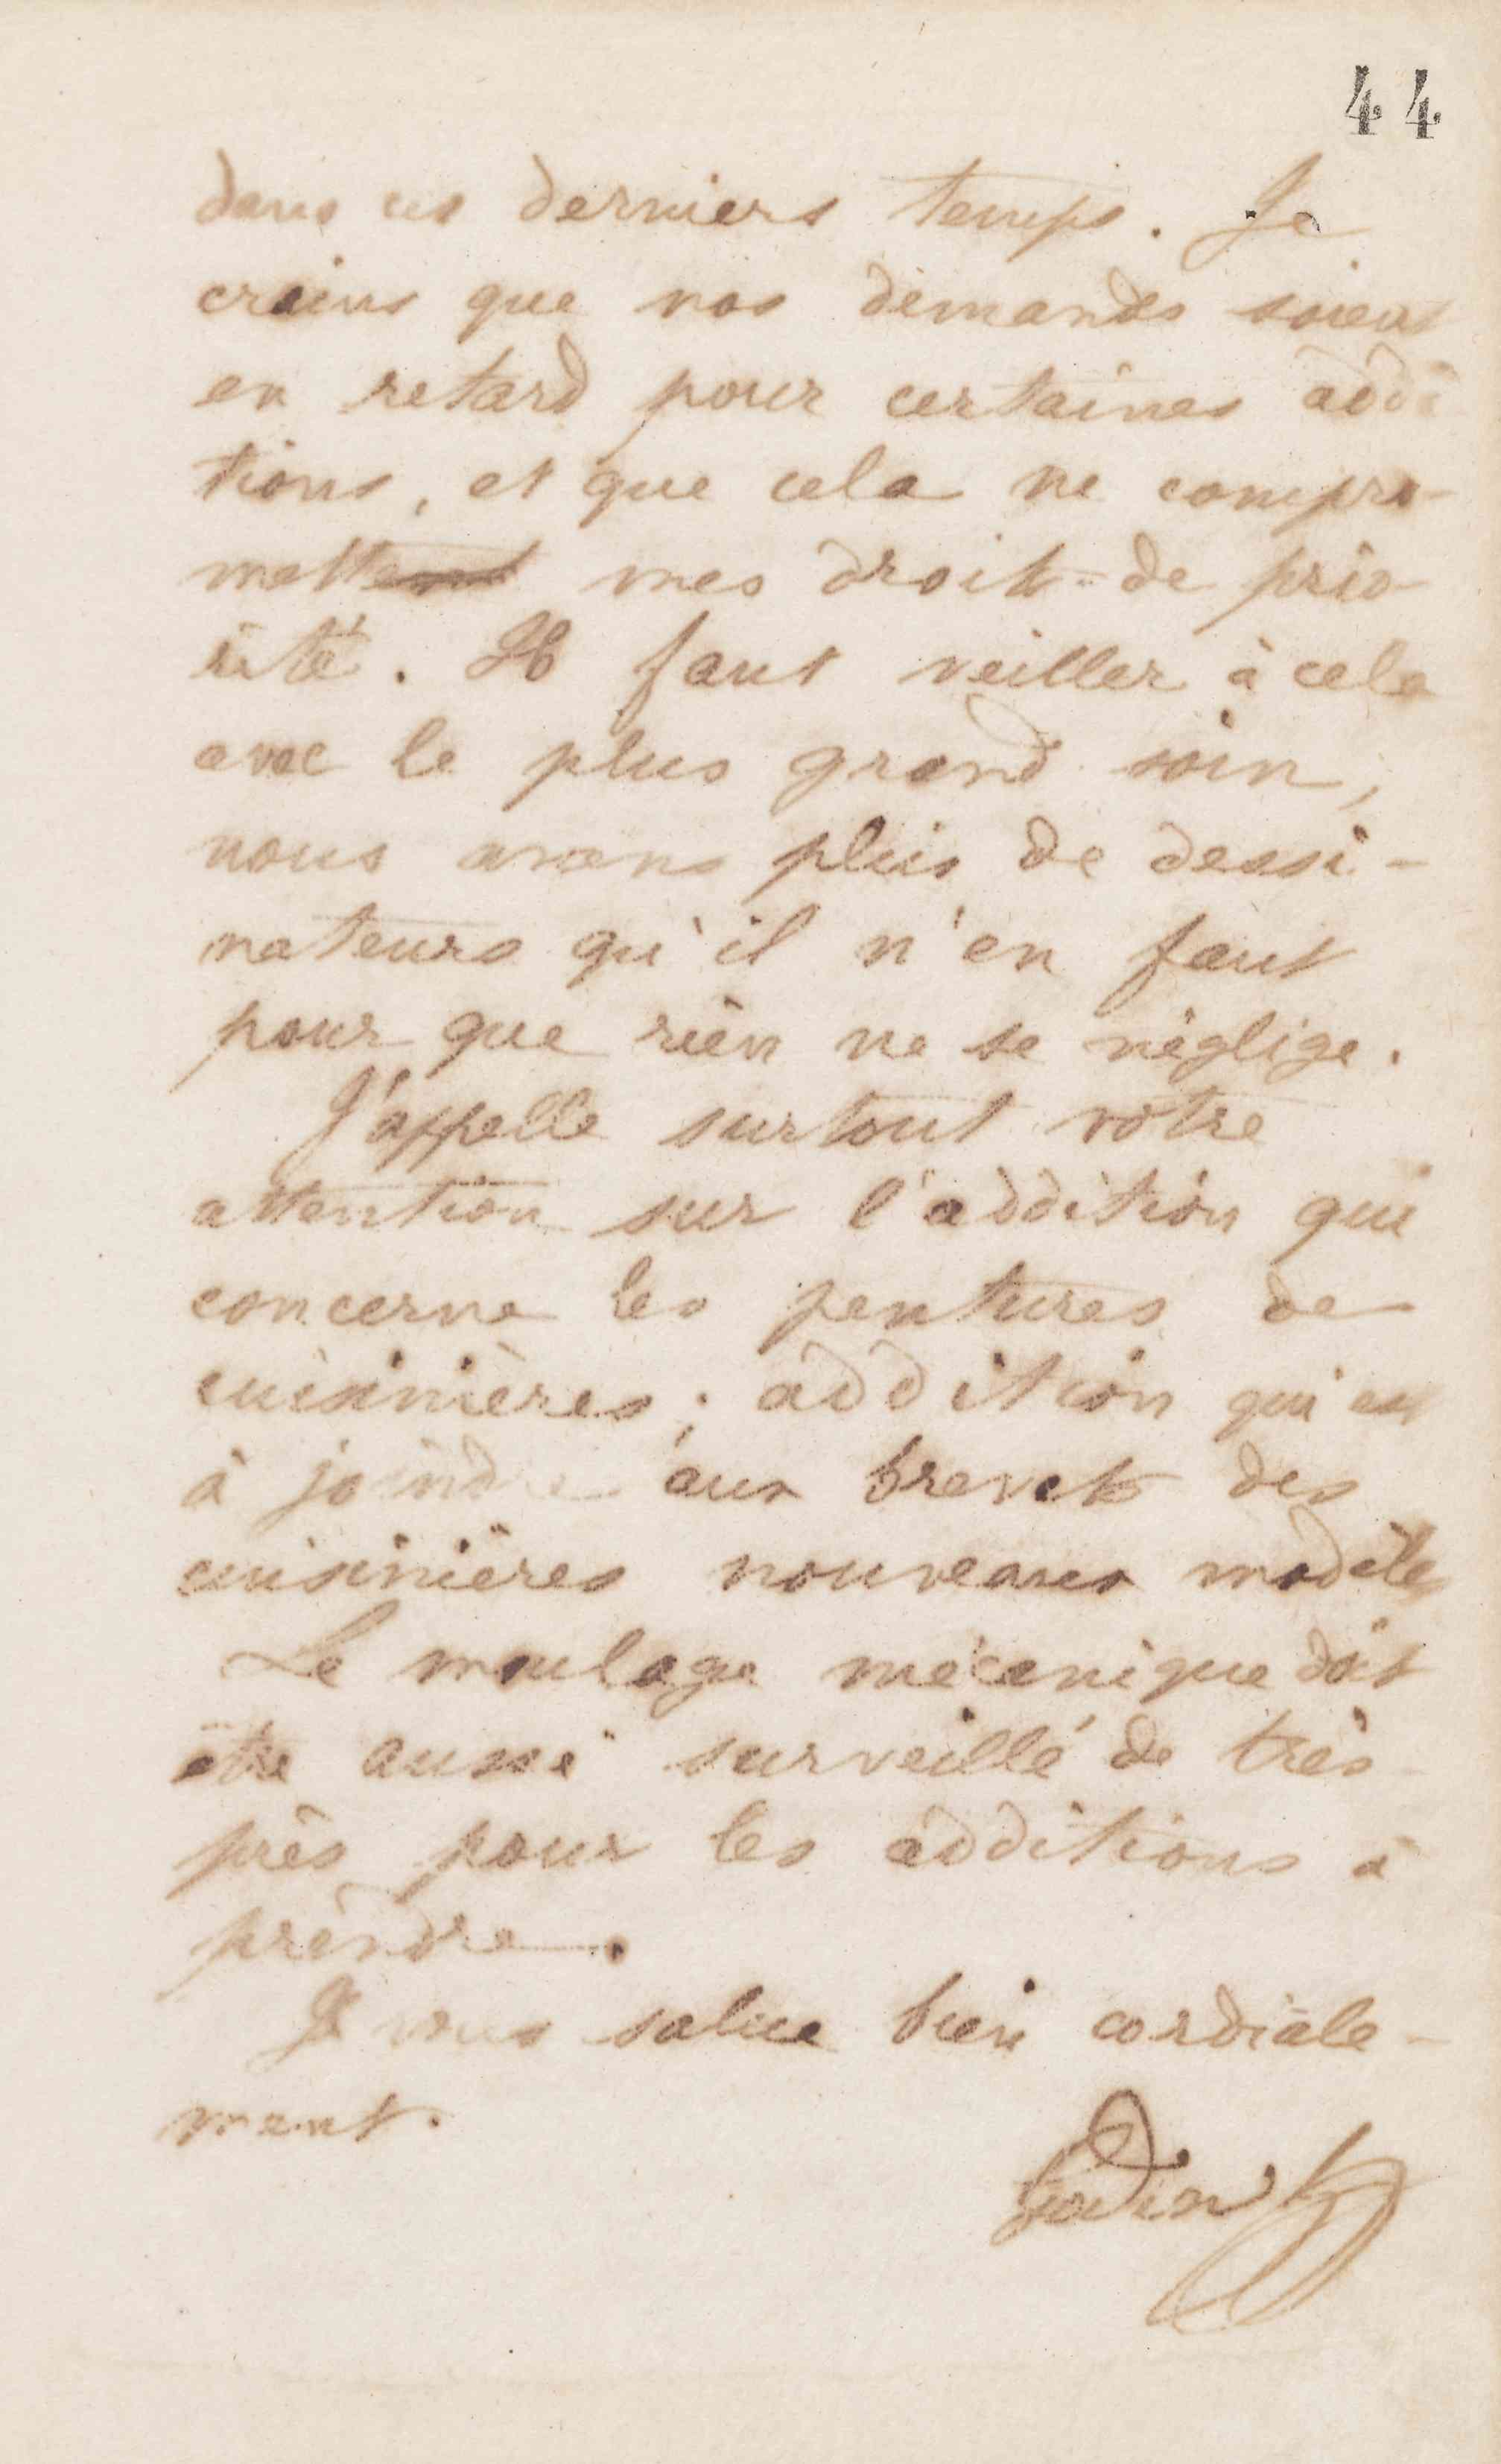 44
dans ces derniers temps. Je
crains que nos demandes soient
en retard pour certaines addi
tions, et que cela ne compro-
mette mes droits de prio
rité. Il faut veiller à cela
avec le plus grand soin,
nous avons plus de dessi-
nateurs qu'il n'en faut
pour que rien ne se néglige.
J'appelle surtout votre
attention sur l'addition qui
concerne les pentures de
cuisinières; addition qui est
à joindre aux brevets des
cuisinières nouveaux modèles
Le moulage mécanique doit
être aussi surveillé de très
près pour les additions à
prendre.
Je vous salue bien cordiale-
ment.
Godin